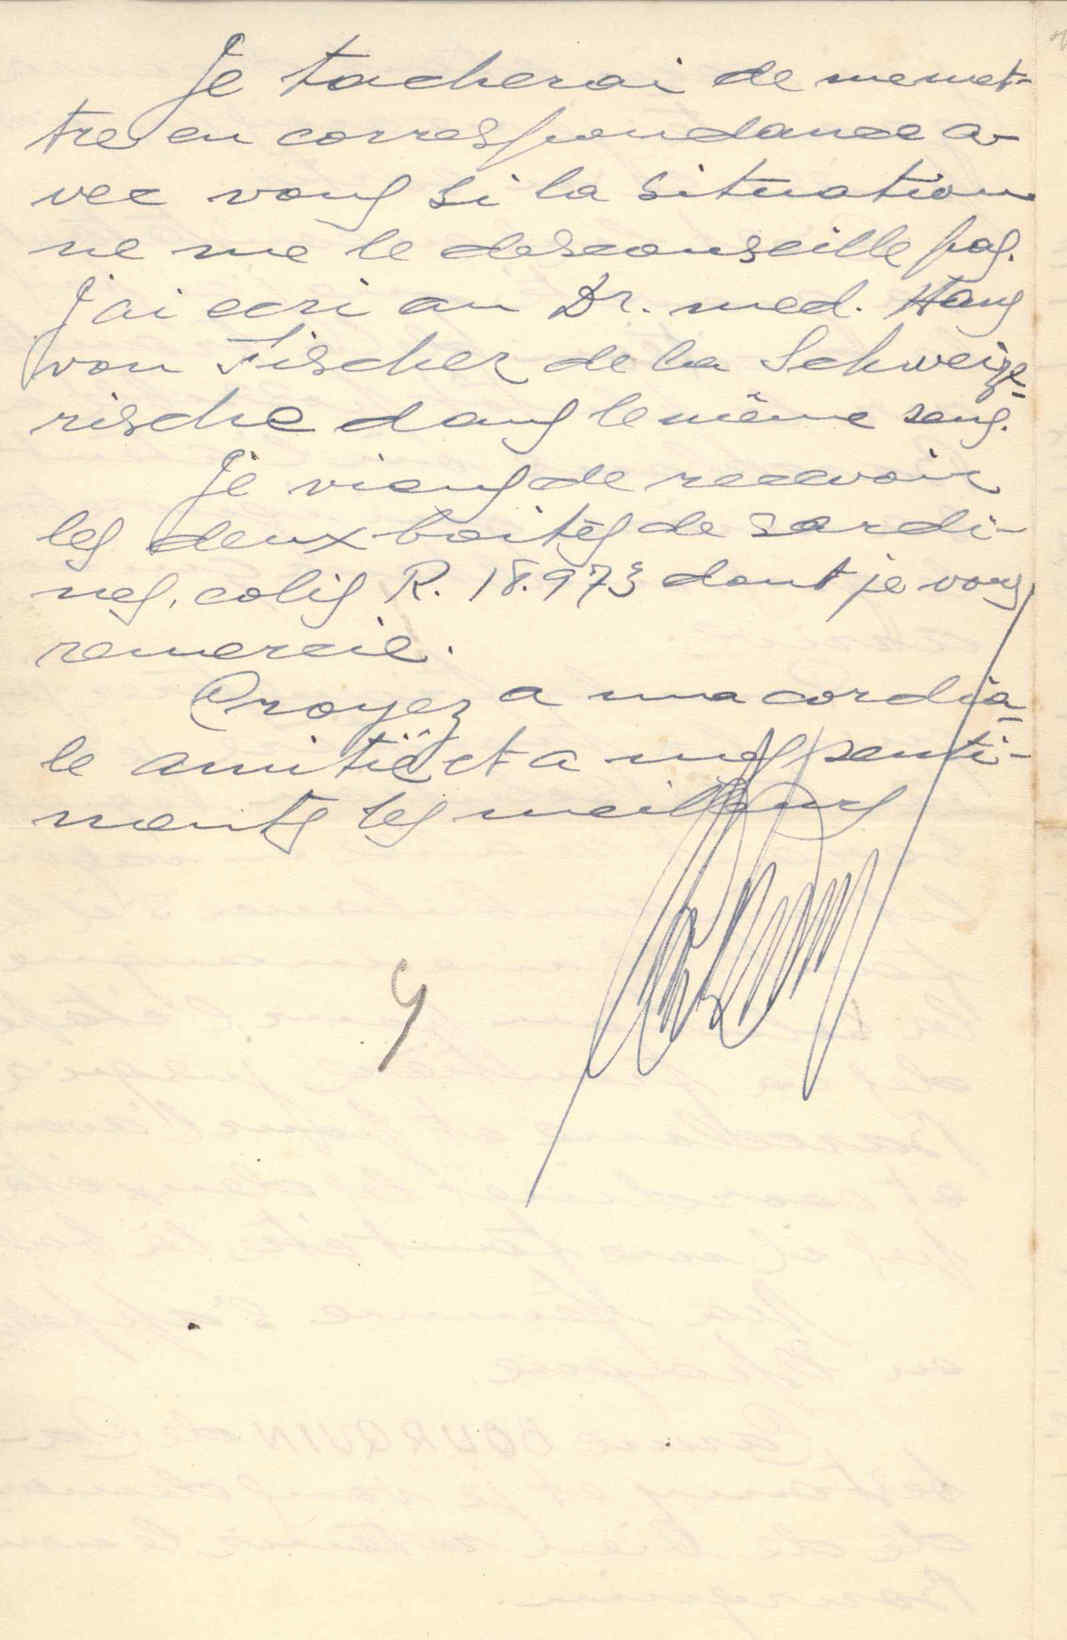 Je tacherai de me met-
tre en correspondance a-
vec vous si la situation
ne me le desconseille pas.
J'ai ecri au Dr. med. Hans
von Fischer de la Schweize-
rische dans le même sens.
Je viens de recevoir
les deux boites de sardi-
nes, colis R. 18.973 dont je vous
remercie.
Croyez a ma cordia-
le amitié et a mes senti-
ments les meilleurs